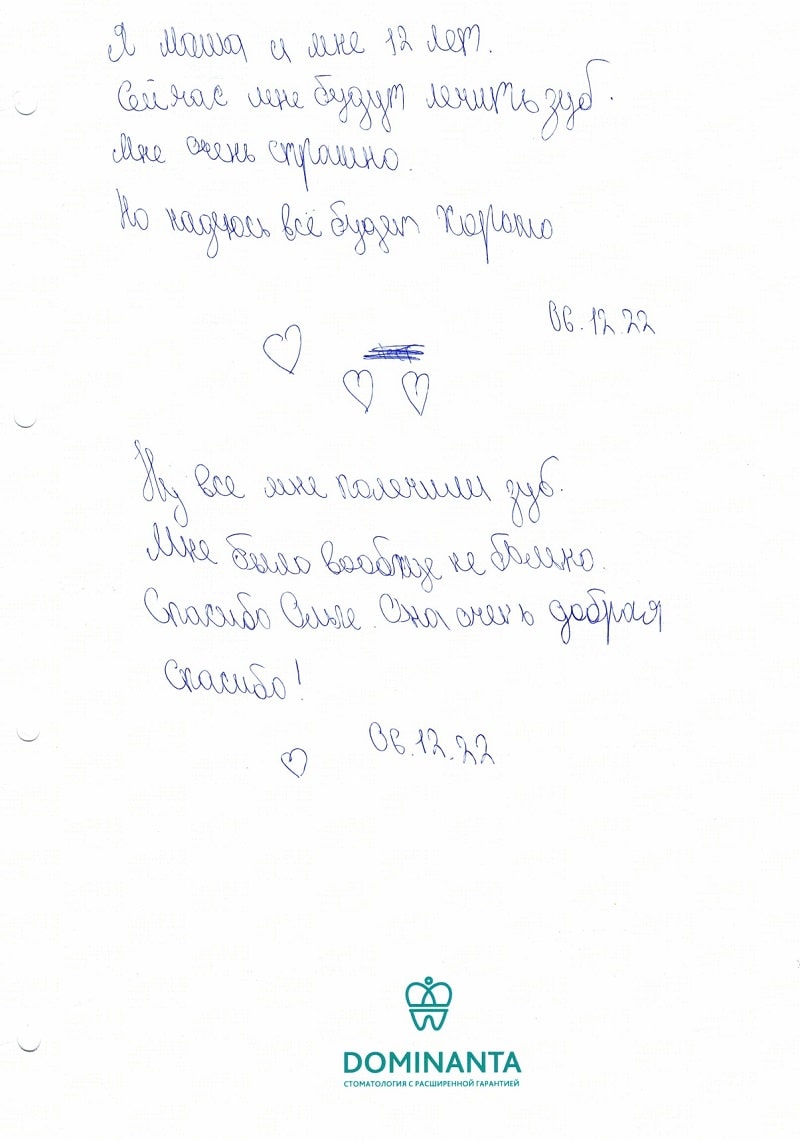 Я Маша и мне 12 лет.
Сейчас мне будут лечить зуб.
Мне очень страшно.
Но надеюсь всё будет хорошо
06.12.22
Ну все мне полечили зуб.
Мне было вообще не больно.
Спасибо Ольге. Она очень добрая
Спасибо!
06.12.22
DOMINANTA
СТОМАТОЛОГИЯ С РАСШИРЕННОЙ ГАРАНТИЕЙ